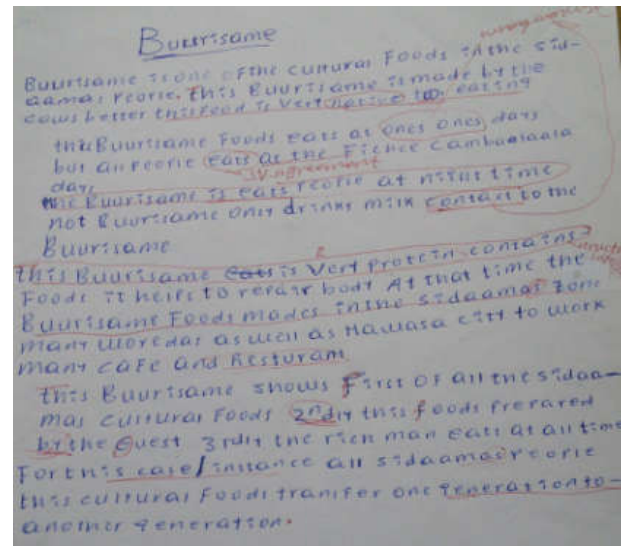 Buurisame
Buurisame is one of the cultural Foods in the sid-
aamas Peorle. this Buurisame is made by the
cows better this Food is Very native to eating
the Buurisame Foods eats at ones ones days
but all Peorle eats at the Fichee Cambalaala
days
the Buurisame is eats Peorle at night time
not Buurisame only drinks milk contact to the
Buurisame
this Buurisame eats is Very Protein contains
Foods it helps to repair body At that time the
Buurisame Foods mades in the sidaamas zone
many woredas as well as Hawasa city to work
many cafe and Resturam
this Buurisame shows First of all the sidaa-
mas cultural Foods 2ndly this foods Prepared
by the Guest 3rdly the rich man eats at all time
For this case/instance all sidaamas Peorle
this cultural Foods transfer one generation to-
another generation.